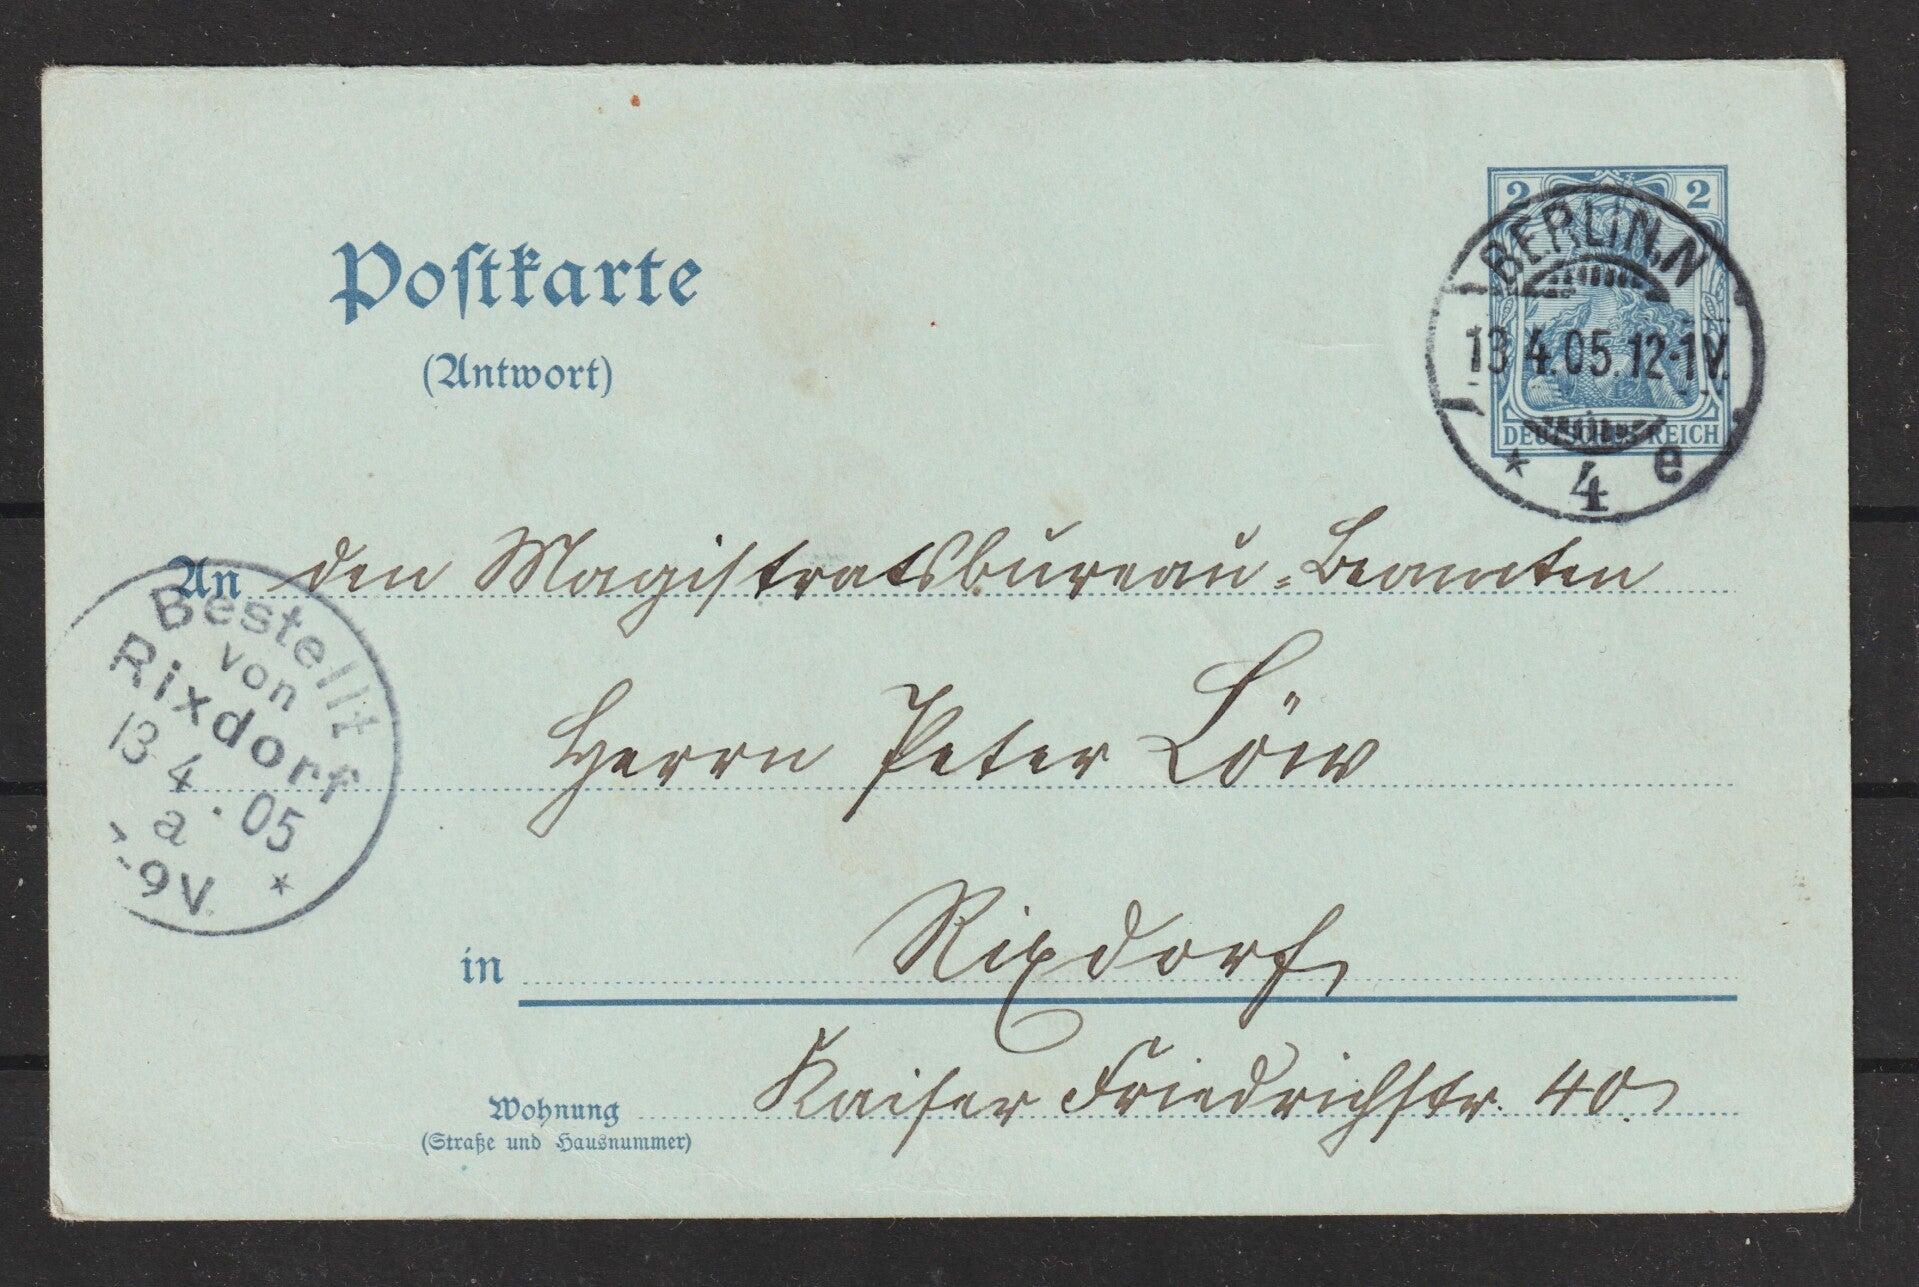 Postkarte
(Antwort)
2 2
DEUTSCHES REICH
BERLIN, N
13.4.05.12-1V.
* 4 e
An den Magistratsbureau-Beamten
Herrn Peter Löw
in Rixdorf
Wohnung Kaiser Friedrichstr. 40.
(Straße und Hausnummer)
Bestellt
von
Rixdorf
13 4.05
a
-9V. *